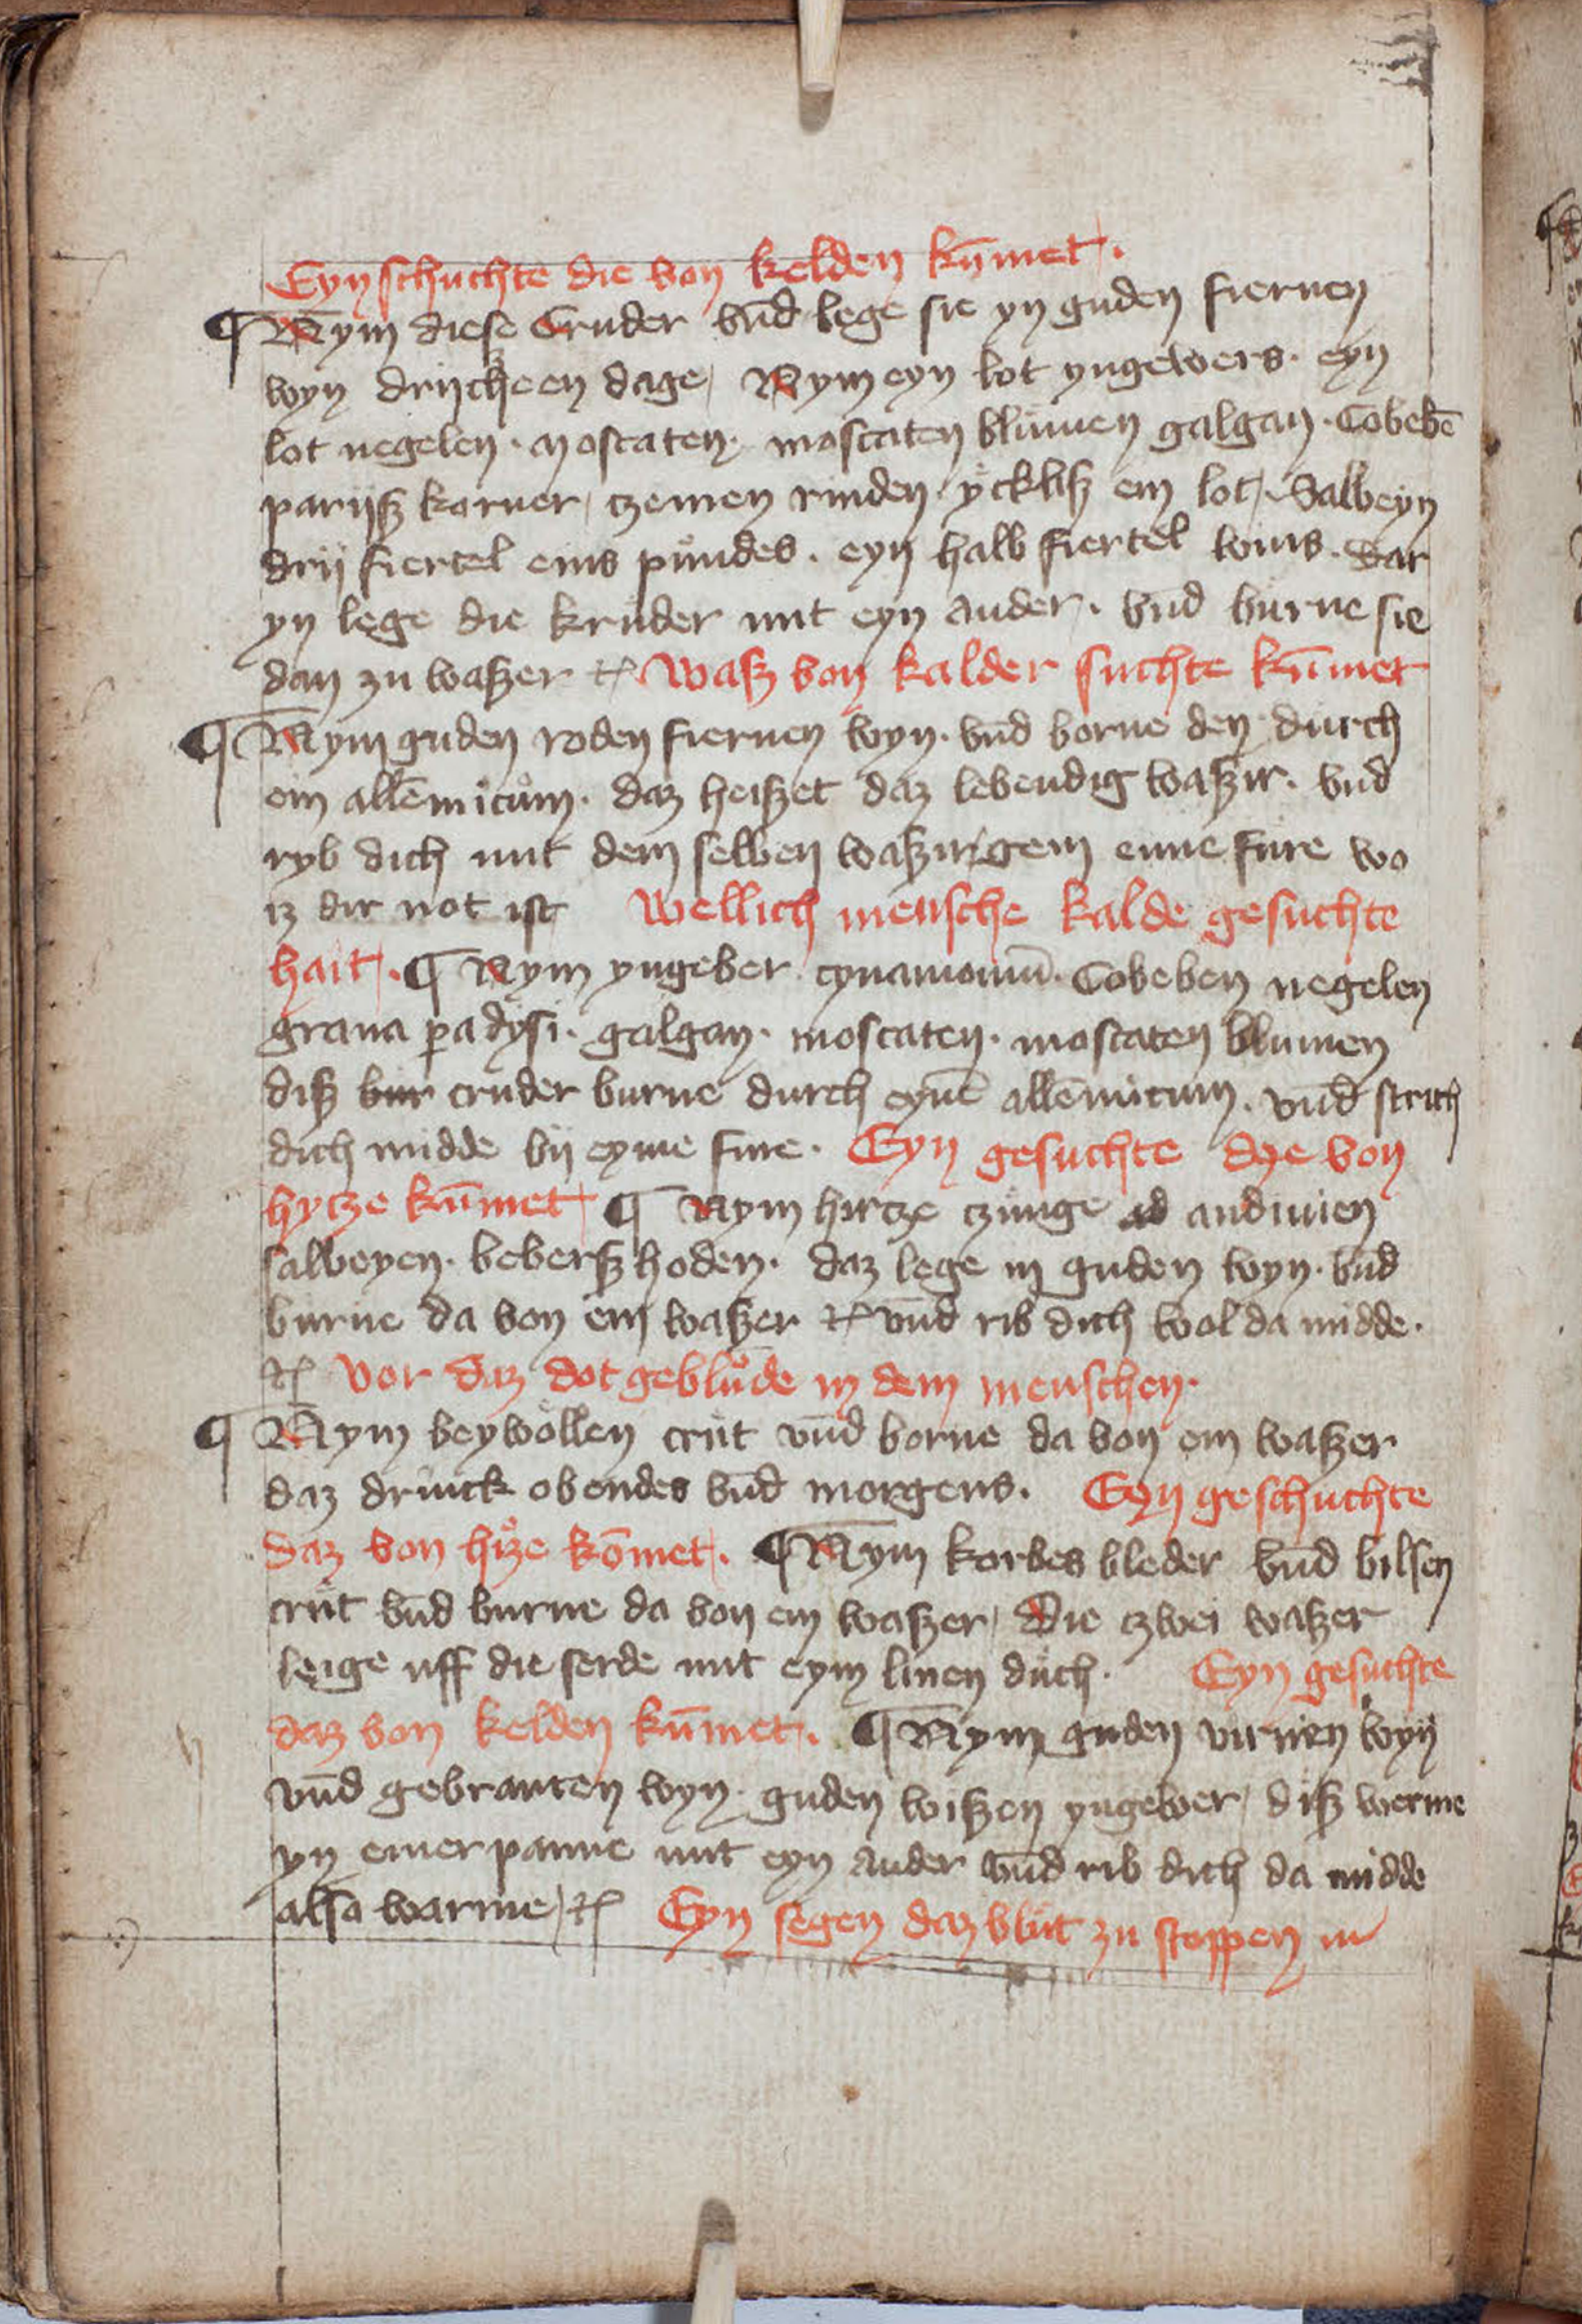 Eyn schuchte die von kelden kūmet.
¶ Nym diese Cruder vnd lege sie yn guden fiernen
wyn drijcheen dage, Nym eyn lot yngewers. eyn
lot negelen. moscaten. moscaten blůmen galgan. Cobebē
parijsz korner, czemen rinden. ycklisz ein lot, Salbeyn
drij fiertel eins pundes. eyn halb fiertel wins. Dar
yn lege die krůder mit eyn ander. vnd burne sie
dan zu waszer etc Wasz von kalder suchte kūmet
¶ Nym guden roden fiernen wyn. vnd borne den durch
ein allēmicům. daz heiszet daz lebendig waszir. vnd
ryb dich mit dem selben waszir gein eime fure wo
iz dir not ist Wellich mensche kalde gesuchte
hait. ¶ Nym yngeber cynamomū. Cobeben negelen
grana padysi. galgan. moscaten. moscaten blumen
disz bur cruder burne durch eynē allēmicum. vnd strich
dich midde bij eyme fure. Eyn gesuchte dye von
hycze kūmet ¶ Nym hircze czunge ad andiuien
salbeyen. beberszhoden. daz lege in guden wyn. vnd
burne da von ein waszer etc vnd rib dich wol da midde.
etc Vor daz dot geblůde in dem menschen.
¶ Nym beywollen crut vnd borne da von ein waszer
daz drinck obendes vnd morgens. Eyn geschuchte
daz von hicze kōmet. ¶ Nym korbes bleder vnd bilsen
crut vnd burne da von ein waszer, Die czwei waszer
leige uff die serde mit eym linen důch. Eyn gesuchte
daz von kelden kūmet. ¶ Nym guden virnen wyn
vnd gebranten wyn. guden wiszen yngewer, disz werme
yn einer panne mit eyn ander vnd rib dich da midde
also warme, etc Eyn segen daz blůt zu stoppen in